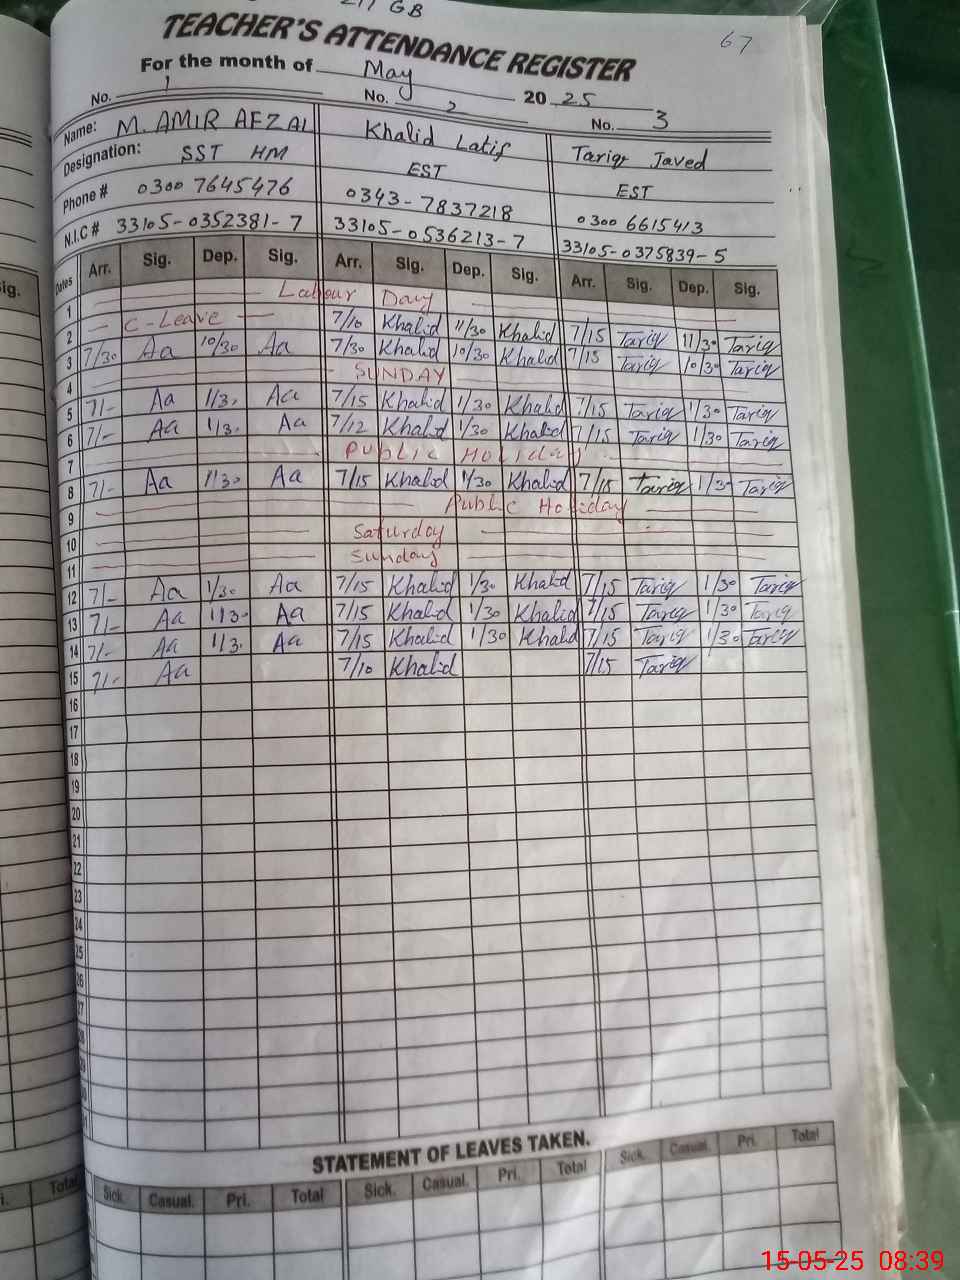 217 GB
67
TEACHER'S ATTENDANCE REGISTER
For the month of May 2025
No. 1 No. 2 No. 3
Name: M. AMIR AFZAL Khalid Latif Tariq Javed
Designation: SST HM EST EST
Phone # 0300 7645476 0343-7837218 0300 6615413
N.I.C # 33105-0352381-7 33105-0536213-7 33105-0375839-5
Dates Arr. Sig. Dep. Sig. Arr. Sig. Dep. Sig. Arr. Sig. Dep. Sig.
1 Labour Day
2 C-Leave 7/10 Khalid 11/30 Khalid 7/15 Tariq 11/30 Tariq
3 7/30 Aa 10/30 Aa 7/30 Khalid 10/30 Khalid 7/15 Tariq 10/30 Tariq
4 SUNDAY
5 7/- Aa 1/3. Aa 7/15 Khalid 1/30 Khalid 7/15 Tariq 1/30 Tariq
6 7/- Aa 1/3. Aa 7/12 Khalid 1/30 Khalid 7/15 Tariq 1/30 Tariq
7 PUBLIC HOLIDAY
8 7/- Aa 1/30 Aa 7/15 Khalid 1/30 Khalid 7/15 Tariq 1/30 Tariq
9 Public Holiday
10 Saturday
11 Sunday
12 7/- Aa 1/30 Aa 7/15 Khalid 1/30 Khalid 7/15 Tariq 1/30 Tariq
13 7/- Aa 1/30 Aa 7/15 Khalid 1/30 Khalid 7/15 Tariq 1/30 Tariq
14 7/- Aa 1/3. Aa 7/15 Khalid 1/30 Khalid 7/15 Tariq 1/30 Tariq
15 7/- Aa 7/10 Khalid 7/15 Tariq
16
17
18
19
20
21
22
23
24
25
26
27
STATEMENT OF LEAVES TAKEN.
Sick. Casual. Pri. Total Sick. Casual. Pri. Total Sick. Casual. Pri. Total
15-05-25 08:39